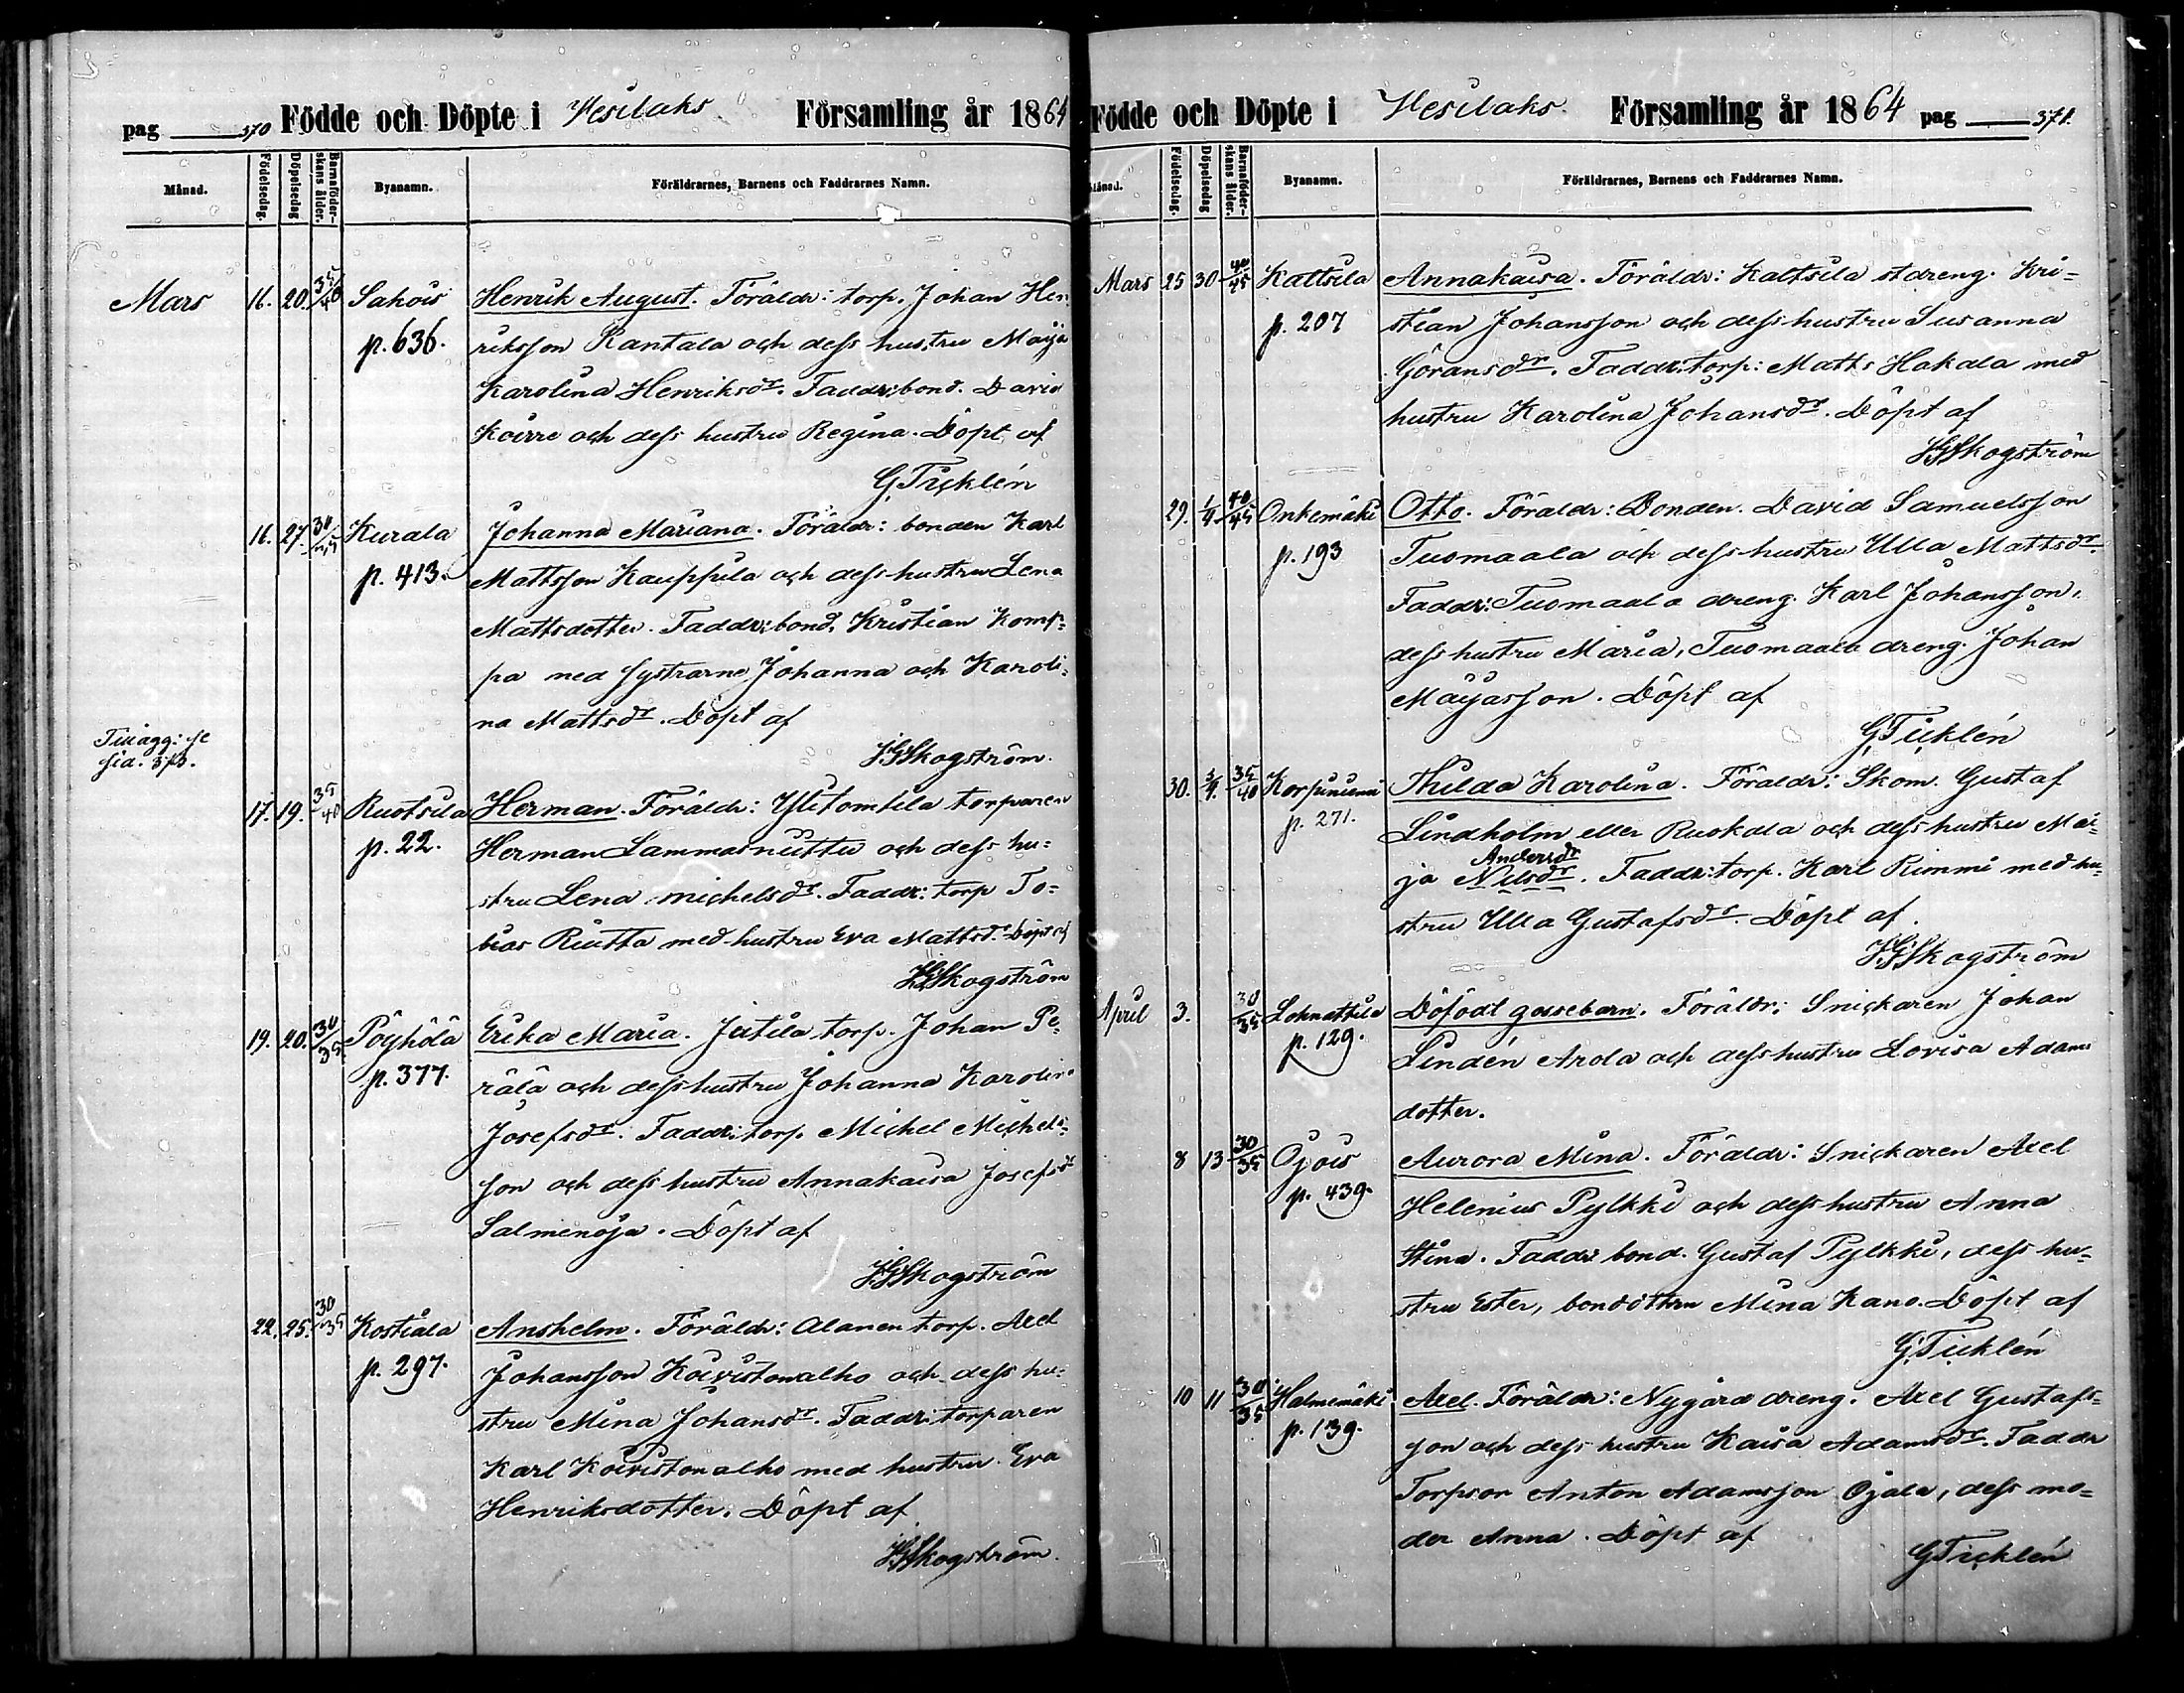 pag 370 Födde och Döpte i Vesilaks Församling år 1864
Månad. Födelsedag. Döpelsedag Barnaföderskans ålder. Byanamn. Föräldrarnes, Barnens och Faddrarnes Namn.
Mars 16. 20. 35/40 Sakois Henrik August. Föräldr: torp. Johan Hen
p. 636. riksson Rantala och dess hustru Maija
Karolina Henriksdr. Faddr: bond. David
Koirre och dess hustru Regina. Döpt af
G Ticklén
16. 27. 30/35 Kurala Johanna Mariana. Föräldr: bonden Karl
p. 413. Mattsson Kauppila och dess hustru Lena
Mattsdotter. Faddr: bond. Kristian Komp=
pa med systrarne Johanna och Karoli=
na Mattsdr. Döpt af
Tillägg: se
sid. 373.
HGSkogström.
17. 19. 35/40 Ruotsila Herman. Föräldr: Ylitomtila torparen
p. 22. Herman Lammasniittu och dess hu=
stru Lena Michelsdr. Faddr: torp To=
bias Riutta med hustru Eva Mattsdr. Döpt af
HGSkogström
19. 20. 30/35 Pöyhölä Erika Maria. Jutila torp. Johan Pe=
p. 377. rälä och dess hustru Johanna Karolina
Josefsdr. Faddr: torp. Michel Michels=
son och dess hustru Annakaisa Josefsdr
Salmenoja. Döpt af
HGSkogström
22. 25. 30/35 Kostiala Anshelm. Föräldr: Alanen torp. Axel
p. 297. Johansson Koivistonalho och dess hu=
stru Mina Johansdr. Faddr: torparen
Karl Koivistonalho med hustru Eva
Henriksdotter. Döpt af
HGSkogström.
Födde och Döpte i Vesilaks. Församling år 1864 pag 371.
Månad. Födelsedag. Döpelsedag Barnaföderskans ålder. Byanamn. Föräldrarnes, Barnens och Faddrarnes Namn.
Mars 25 30 40/45 Kaltsila Annakaisa. Föräldr: Kaltsila stdreng. Kri=
p. 207 stian Johansson och dess hustru Susanna
Göransdr. Faddr: torp: Matts Hakala med
hustru Karolina Johansdr. Döpt af
HGSkogström
29. 1/4 40/45 Onkemäki Otto. Föräldr: Bonden David Samuelsson
p. 193 Tuomaala och dess hustru Ulla Mattsdr.
Faddr: Tuomaala dreng. Karl Johansson,
dess hustru Maria, Tuomaala dreng. Johan
Maijasson. Döpt af
G Ticklén
30. 3/4. 35/40 Korpiniemi Thilda Karolina. Föräldr: Skom. Gustaf
p. 271. Lindholm eller Ruokala och dess hustru Mai=
Andersdr
ja Nilsdr. Faddr: torp. Karl Rimmi med hu=
stru Ulla Gustafsdr. Döpt af.
HGSkogström
April 3. 30/35 Lehmattila Döfödt gossebarn. Föräldr: Snickaren Johan
p. 129. Lindén Arola och dess hustru Lovisa Adams
dotter.
8 13 30/35 Ojois Aurora Mina. Föräldr: Snickaren Axel
p. 439. Helenius Pylkki och dess hustru Anna
Stina. Faddr bond. Gustaf Pylkki, dess hu=
stru Ester, bondottren Mina Kano. Döpt af
G Ticklén
10 11 30/35 Halmemäki Axel. Föräldr: Nygård dreng. Axel Gustafs=
p. 139. son och dess hustru Kaisa Adamsdr. Faddr
Torpson Anton Adamsson Ojala, dess mo=
der Anna. Döpt af
G Ticklén